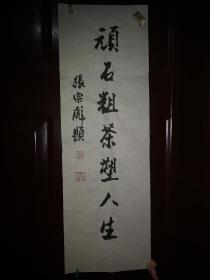 頑石粗茶塑人生
張宗彪題